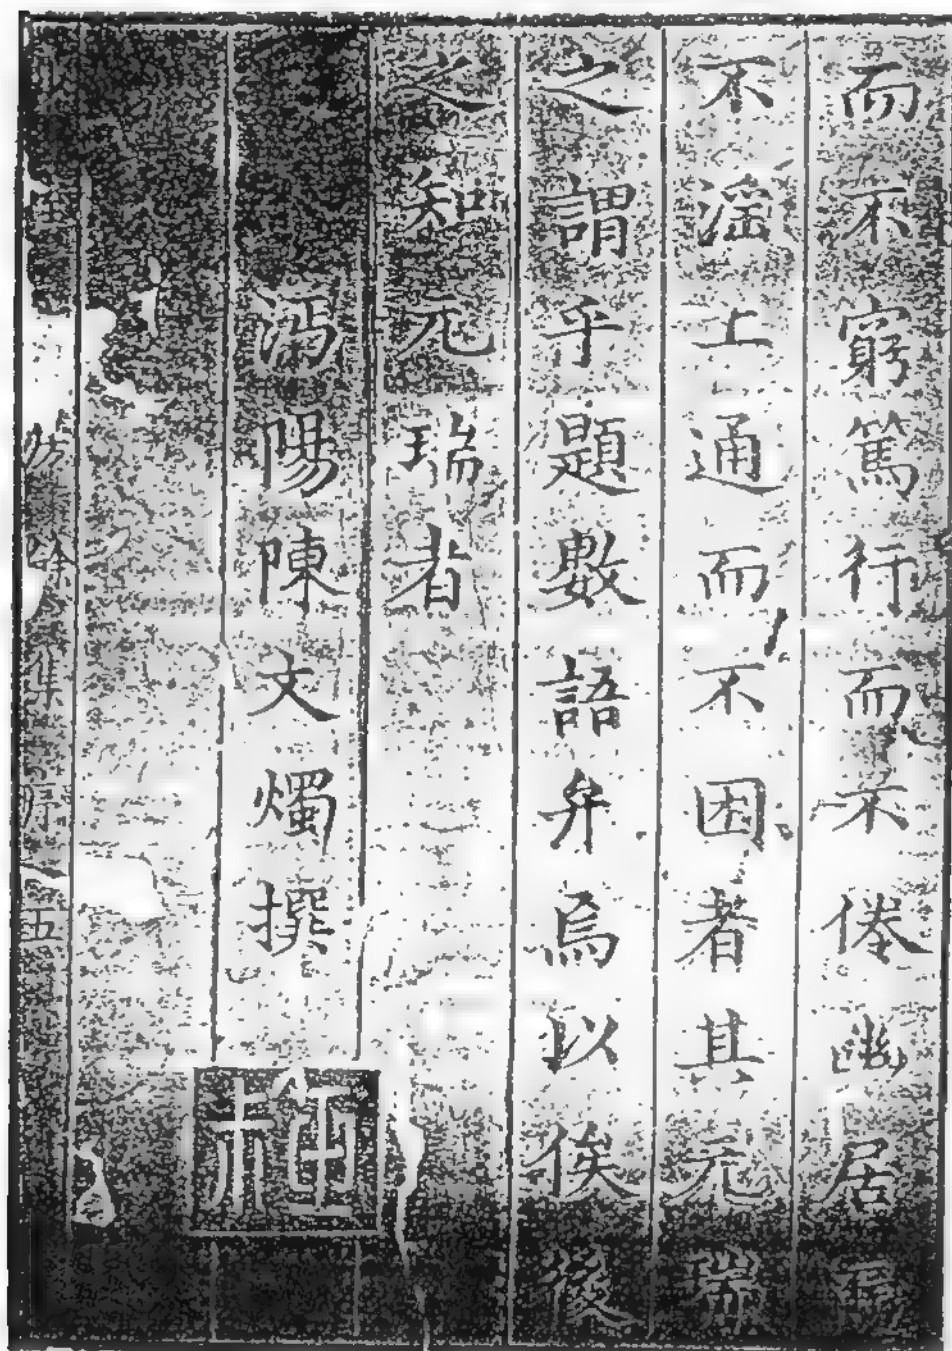 而不窮篤行而不倦幽居而
不滛上通而不困者其元瑞
之謂乎題數語弁焉以俟後
之知元瑞者
沔陽陳文燭撰
餘集序
五